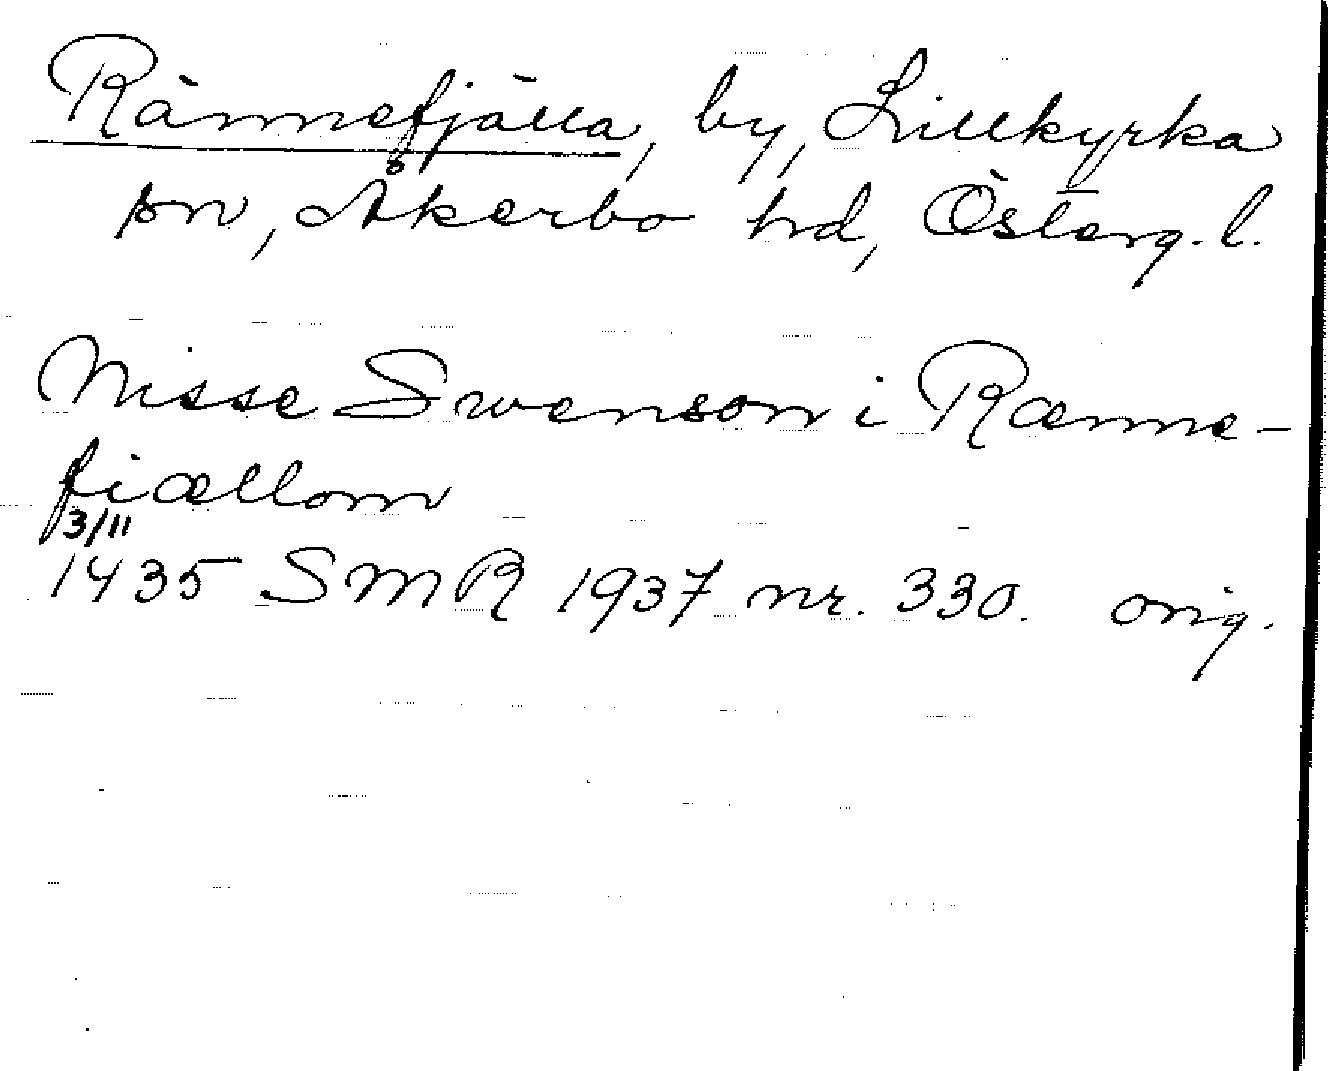 Rännefjälla, by, Lillkyrka
sn, Åkerbo hd, Österg. l.
Nisse Swenson i Rænne-
fiællom
3/11
1435 SMR 1937 nr. 330. orig.